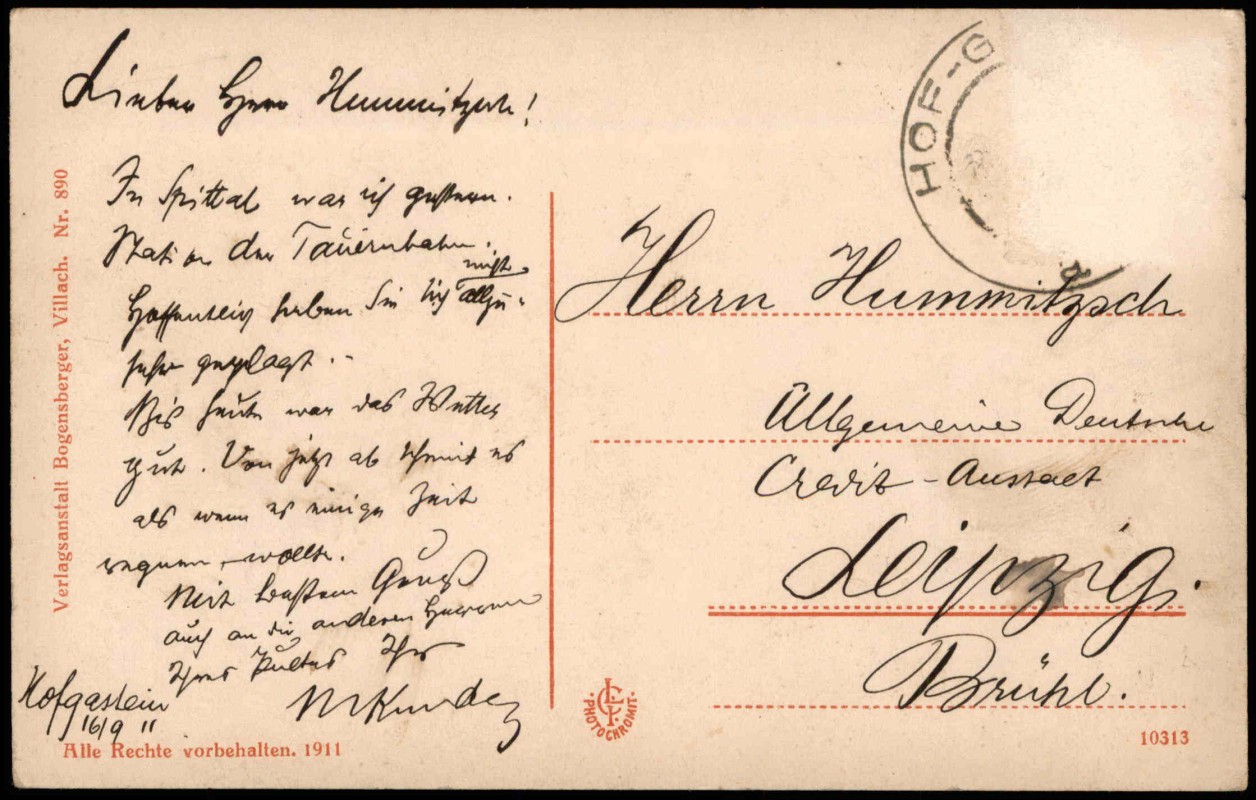 Lieber Herr Hummitzsch!
In Spittal war ich gestern.
Station der Tauernbahn.
nicht
Hoffentlich haben Sie sich allzu-
sehr geplagt.
Bis heute war das Wetter
gut. Von jetzt ab scheint es
als wenn es einige Zeit
regnen wollte.
Mit bestem Gruß
auch an die anderen Herren
Ihres Pultes Ihr
Hofgastein
16/9 11
Verlagsanstalt Bogensberger, Villach. Nr. 890
Alle Rechte vorbehalten. 1911
HOF-G
Herrn Hummitzsch
Allgemeine Deutsche
Credit-Anstalt
Leipzig.
Brühl.
PHOTOCHROMIT
10313